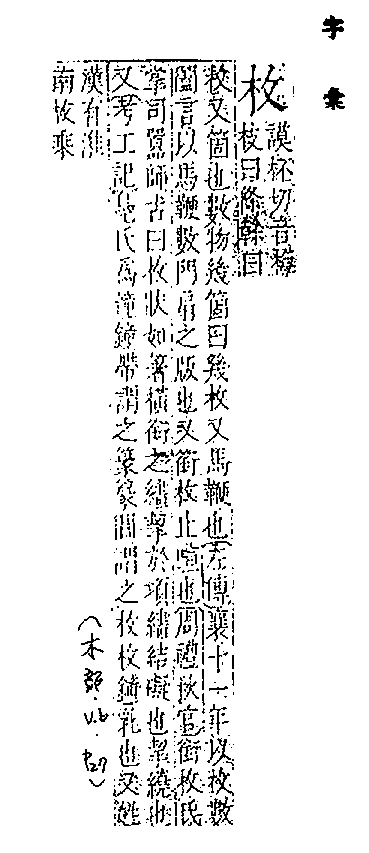 字彙
枚
謨杯切音梅
枝曰條榦曰
枚又箇也數物幾箇曰幾枚又馬鞭也左傳襄十一年以枚數
闔言以馬鞭數門扇之版也又銜枚止喧也周禮秋官銜枚氏
掌司囂師古曰枚狀如箸橫銜之繣絜於項繣結礙也絜繞也
又考工記鳧氏爲鐘鐘帶謂之篆篆間謂之枚枚鐘乳也又姓
漢有淮
南枚乘
(木部.